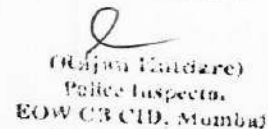 (Rajan Kandare)
Police Inspector
EOW CB CID, Mumbai